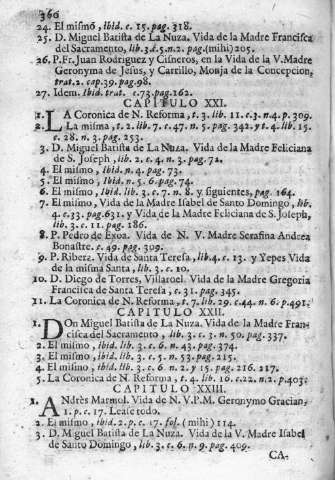 360
24. El mismo, ibid. c. 15. pag. 318.
25. D. Miguel Batista de La Nuza. Vida de la Madre Francisca
del Sacramento, lib. 3. d. 5. n. 2. pag. (mihi) 205.
26. P. Fr. Juan Rodriguez y Cisneros, en la Vida de la V. Madre
Geronyma de Jesus, y Carrillo, Monja de la Concepcion,
trat. 2. cap. 39. pag. 98.
27. Idem. Ibid. trat. c. 73. pag. 162.
CAPITULO XXI.
1. LA Coronica de N. Reforma, t. 3. lib. 11. c. 3. n. 4. p. 309.
2. La misma, t. 2. lib. 7. c. 47. n. 5. pag. 342. y t. 4. lib. 15.
c. 28. n. 3. pag. 253.
3. D. Miguel Batista de La Nuza. Vida de la Madre Feliciana
de S. Joseph, lib. 2. c. 4. n. 3. pag. 72.
4. El mismo, ibid. n. 4. pag. 73.
5. El mismo, ibid. n. 5. 6. pag. 74.
6. El mismo, ibid. lib. 3. c. 7. n. 8. y siguientes, pag. 164.
7. El mismo, Vida de la Madre Isabel de Santo Domingo, lib.
4. c. 33. pag. 631. y Vida de la Madre Feliciana de S. Joseph,
lib. 3. c. 11. pag. 186.
8. P. Pedro de Exoa. Vida de N. V. Madre Serafina Andrea
Bonastre. c. 49. pag. 309.
9. P. Ribera. Vida de Santa Teresa, lib. 4. c. 13. y Yepes Vida
de la misma Santa, lib. 3. c. 10.
10. D. Diego de Torres, Villaroel. Vida de la Madre Gregoria
Francisca de Santa Teresa, c. 31. pag. 345.
11. La Coronica de N. Reforma, t. 7. lib. 29. c. 44. n. 6. p. 491.
CAPITULO XXII.
1. DOn Miguel Batista de La Nuza. Vida de la Madre Fran-
cisca del Sacramento, lib. 3. c. 3. n. 50. pag. 337.
2. El mismo, ibid. lib. 3. c. 6. n. 43. pag. 374.
3. El mismo, ibid. lib. 3. c. 5. n. 53. pag. 215.
4. El mismo, ibid. lib. 3. c. 6. n. 2. y 15. pag. 216. 217.
5. La Coronica de N. Reforma, t. 4. lib. 16. c. 22. n. 2. p. 403.
CAPITULO XXIII.
1. ANdrès Marmol. Vida de N. V. P. M. Geronymo Gracian,
1. p. c. 17. Lease todo.
2. El mismo, ibid. 2. p. c. 17. fol. (mihi) 114.
3. D. Miguel Batista de La Nuza. Vida de la V. Madre Isabel
de Santo Domingo, lib. 3. c. 6. n. 9. pag. 409.
CA-